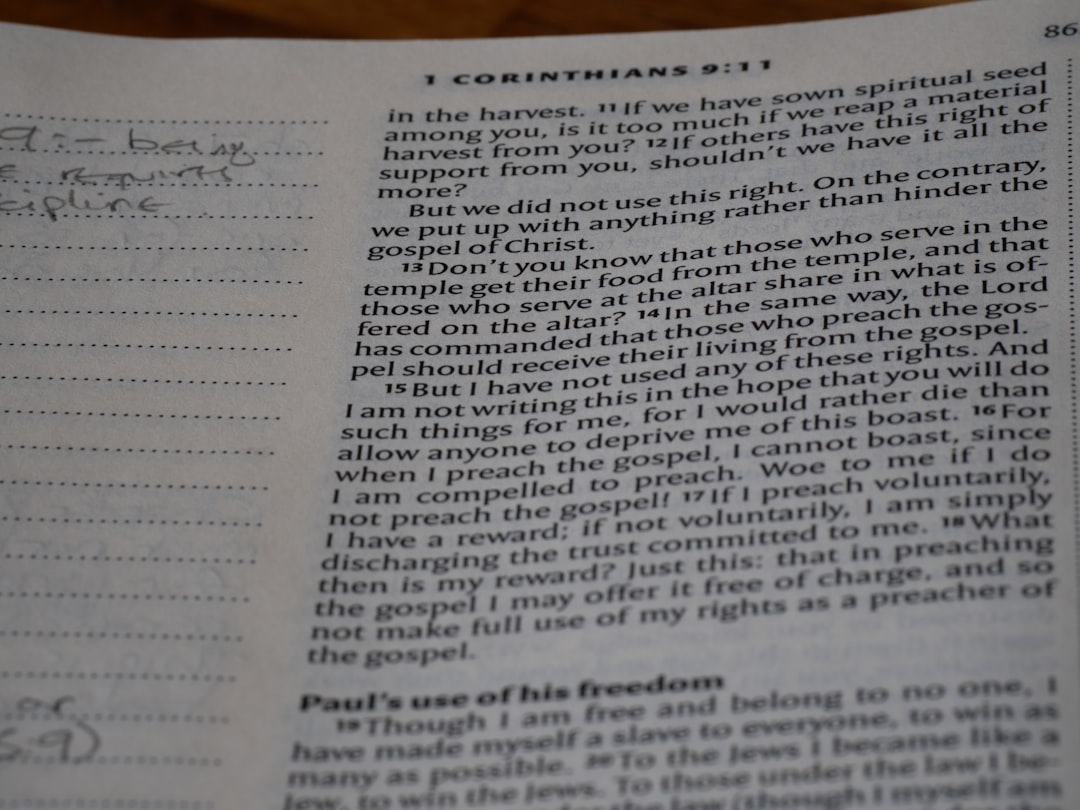 1 CORINTHIANS 9:11
86
in the harvest. 11 If we have sown spiritual seed
among you, is it too much if we reap a material
harvest from you? 12 If others have this right of
support from you, shouldn't we have it all the
more?
But we did not use this right. On the contrary,
we put up with anything rather than hinder the
gospel of Christ.
13 Don't you know that those who serve in the
temple get their food from the temple, and that
those who serve at the altar share in what is of-
fered on the altar? 14 In the same way, the Lord
has commanded that those who preach the gos-
pel should receive their living from the gospel.
15 But I have not used any of these rights. And
I am not writing this in the hope that you will do
such things for me, for I would rather die than
allow anyone to deprive me of this boast. 16 For
when I preach the gospel, I cannot boast, since
I am compelled to preach. Woe to me if I do
not preach the gospel! 17 If I preach voluntarily,
I have a reward; if not voluntarily, I am simply
discharging the trust committed to me. 18 What
then is my reward? Just this: that in preaching
the gospel I may offer it free of charge, and so
not make full use of my rights as a preacher of
the gospel.
Paul's use of his freedom
19 Though I am free and belong to no one, I
have made myself a slave to everyone, to win as
many as possible. 20 To the Jews I became like a
Jew, to win the Jews. To those under the law I be-
the law (though I myself am
9:- being
requires
cipline
or
5:9)